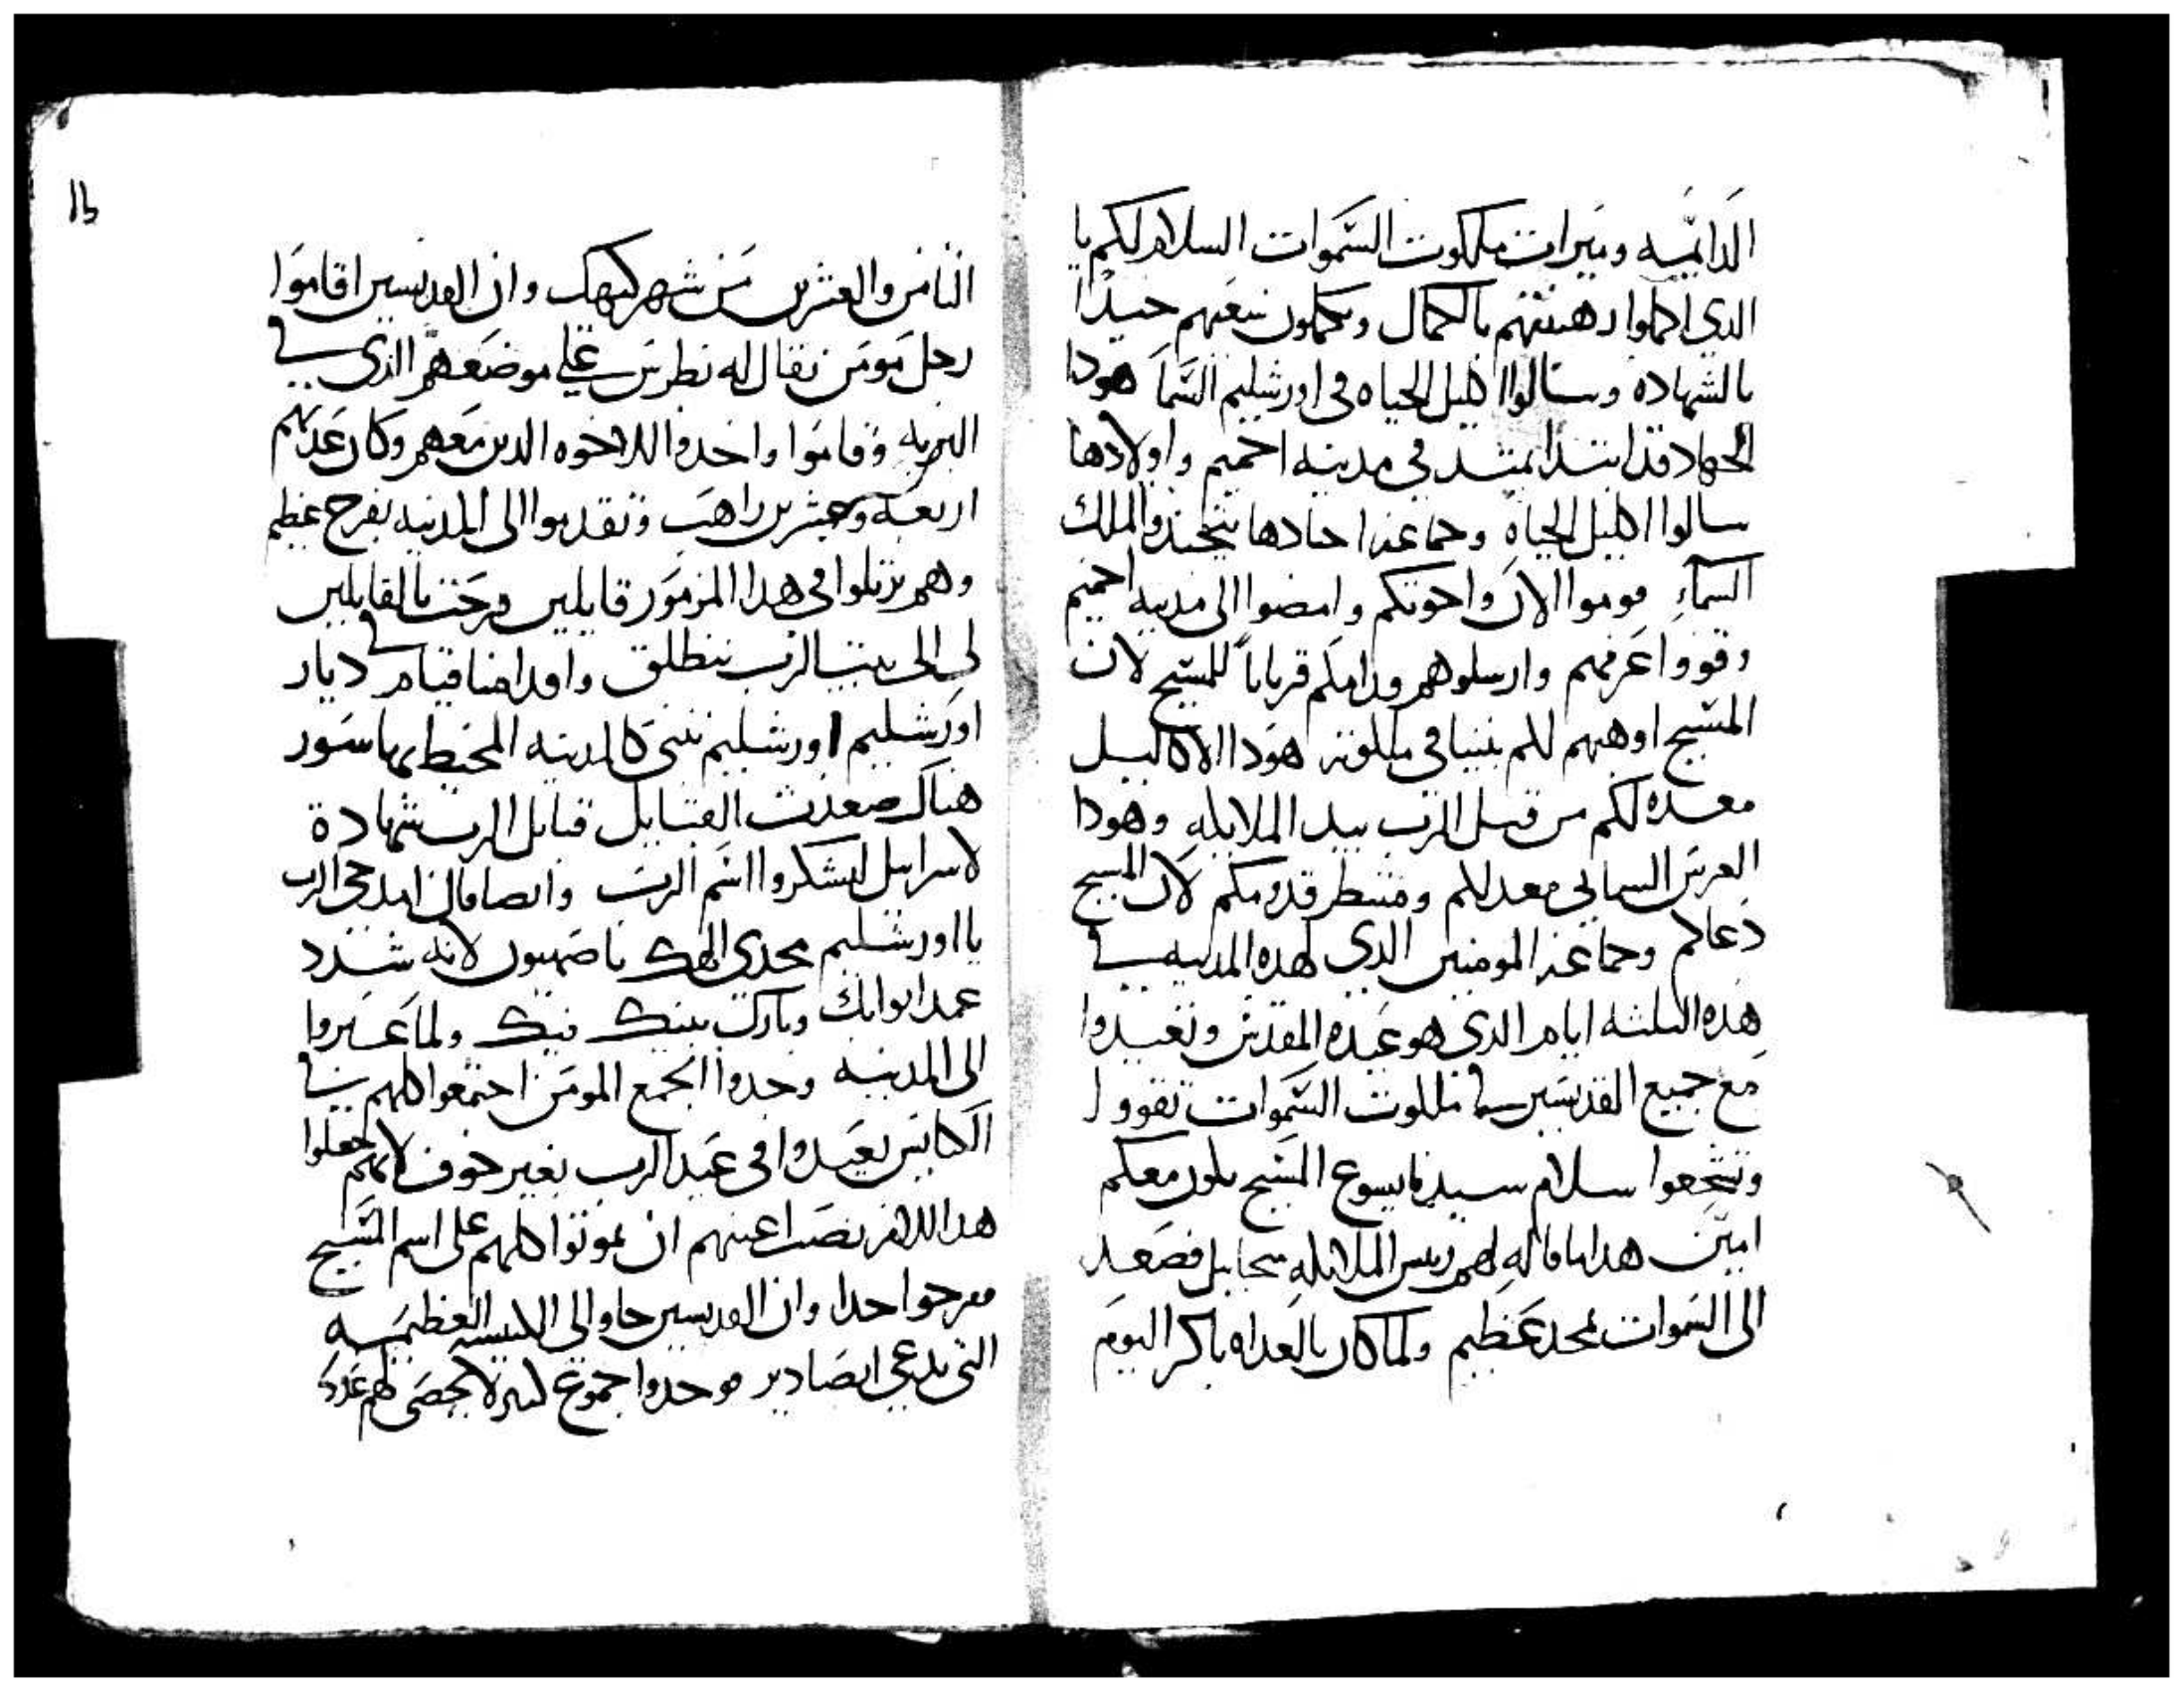 الدايمه وميرات ملكوت السموات السلام لكم يا
الدي اكملوا رهبنتهم بالكمال ويكملون سعيهم جيدًا
بالشهاده وينالوا اكليل الحياه في اورشليم السما هودا
الجهاد قد ابتدا يمتد في مدينه اخميم واولادها
ينالوا اكليل الحياه وجماعه اجنادها يتجندوا لملك
السماء قوموا الان واخوتكم وامضوا الى مدينه اخميم
وقووا عزمهم وارسلوهم قدامكم قربانا للمسيح لان
المسيح اوهبهم لكم بنينا في ملكوته هودا الاكاليل
معده لكم من قبل الرب بيد الملايكه وهودا
العرس السماني معد لكم ومنتظر قدومكم لان المسيح
دعاكم وجماعه المومنين الدي لهده المدينه في
هده التلته ايام الدي هو عيده المقدس وتعيدوا
مع جميع القديسين في ملكوت السموات تقووا
وتشجعوا سلام سيدنا يسوع المسيح يكون معكم
امين هدا ما قاله لهم رييس الملايكه ميخاييل فصعد
الى السموات بمجد عظيم ولما كان بالغداه باكر اليوم
التامن والعشرين من شهر كيهك وان القديسين اقاموا
رجل مومن يقال له بطرس على موضعهم الذي في
البريه وقاموا واخدوا الاخوه الدين معهم وكان عددهم
اربعه وعشرين راهب وتقدموا الى المدينه بفرح عظيم
وهم يرتلوا في هدا المزمور قايلين فرحت بالقايلين
لي الى بيت الرب ننطلق واقدامنا قيام في ديار
اورشليم اورشليم تبنى كالمدينه المحيط بها سور
هناك صعدت القبايل قبايل الرب شهادة
لاسراييل ليشكروا اسم الرب وايضا قال امدحي الرب
يا اورشليم مجدي الهك يا صهيون لانه شدد
عمد ابوابك وبارك بنيك فيك ولما عبروا
الى المدينه وجدوا الجمع المومن اجتمعوا كلهم في
الكنايس يعيدوا في عيد الرب بغير خوف لانهم جعلوا
هدا الامر نصب اعينهم ان يموتوا كلهم على اسم المسيح
ففرحوا جدا وان القديسين جاو الى الكنيسه العظيمه
التي تدعى ايضا دير فوجدوا جموع كتيره لا يحصى لهم عدد